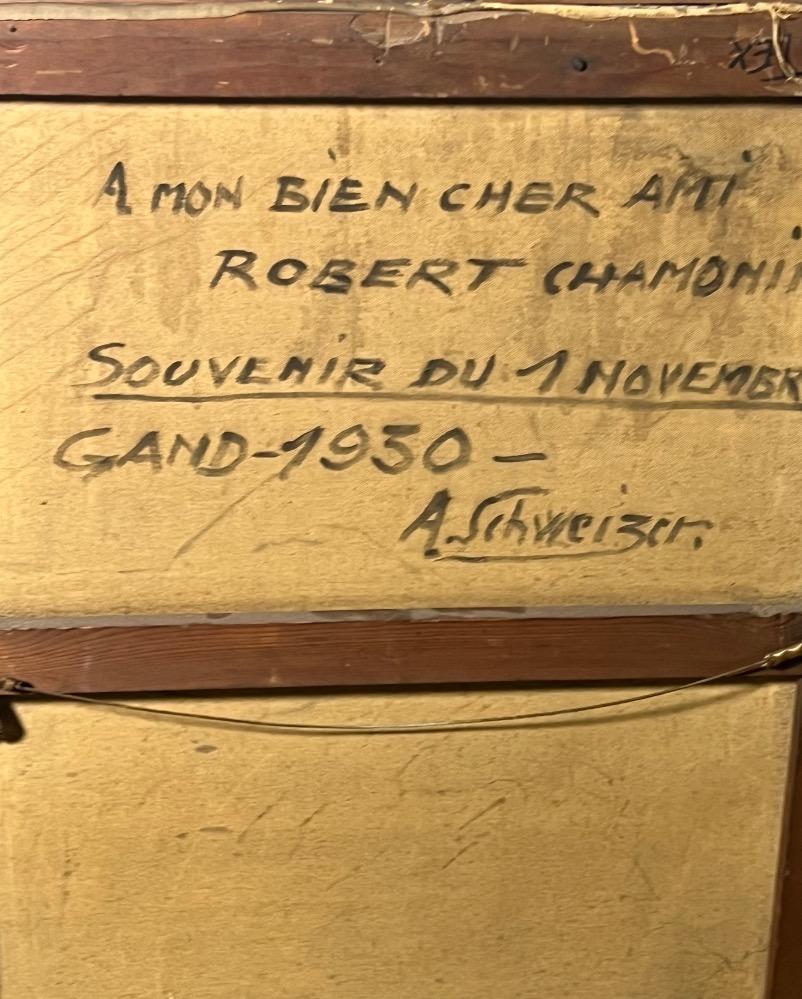 A MON BIEN CHER AMI
ROBERT CHAMONI
SOUVENIR DU 1 NOVEMBR
GAND-1930 —
A. Schweizer.